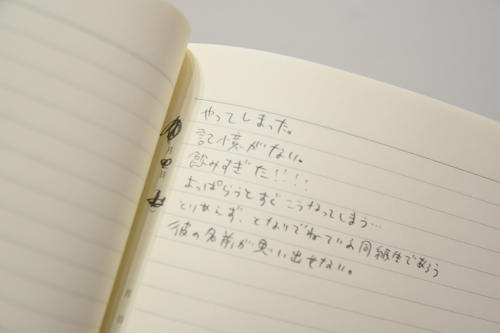 やってしまった。
記憶がない。
飲みすぎた!!!!
よっぱらうとすぐこうなってしまう…
とりあえず、となりでねている同級生であろう
彼の名前が思い出せない。
月
日